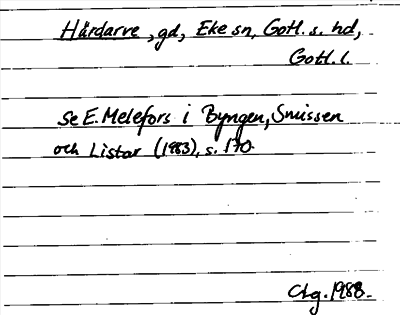 Hårdarve, gd, Eke sn, Gotl. s. hd,
Gotl. l.
Se E. Melefors i Byngen, Snissen
och Listar (1983), s. 170.
Ctg. 1988.